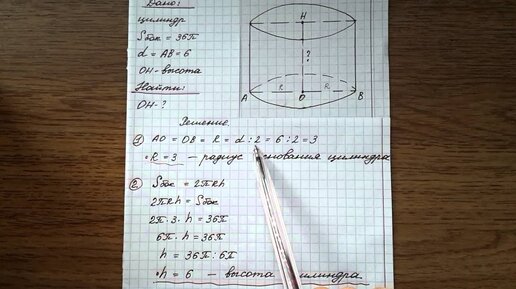 Дано:
цилиндр
Sбок = 36π
d = AB = 6
OH - высота
Найти:
OH - ?
H
?
R R
A O B
Решение
① AO = OB = R = d : 2 = 6 : 2 = 3
• R = 3 – радиус основания цилиндра
② Sбок = 2πRh
2πRh = Sбок
2π · 3 · h = 36π
6π · h = 36π
h = 36π : 6π
• h = 6 – высота цилиндра